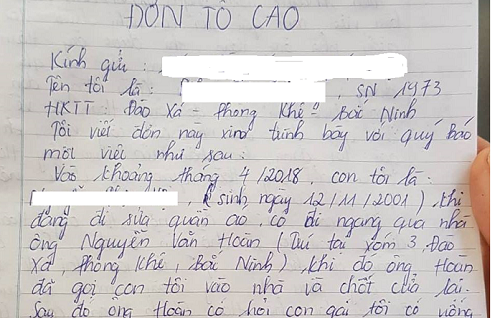 ĐƠN TỐ CÁO
Kính gửi :
Tên tôi là : , SN 1973
HKTT : Đào Xá - Phong Khê - Bắc Ninh
Tôi viết đơn này xin trình bày với quý báo
một việc như sau :
Vào khoảng tháng 4/2018, con tôi là :
( sinh ngày 12/11/2001) khi
đang đi sửa quần áo, có đi ngang qua nhà
ông Nguyễn Văn Hoàn (Trú tại xóm 3, Đào
Xá, Phong Khê, Bắc Ninh), khi đó ông Hoàn
đã gọi con tôi vào nhà và chốt cửa lại.
Sau đó ông Hoàn có hỏi con gái tôi có uống